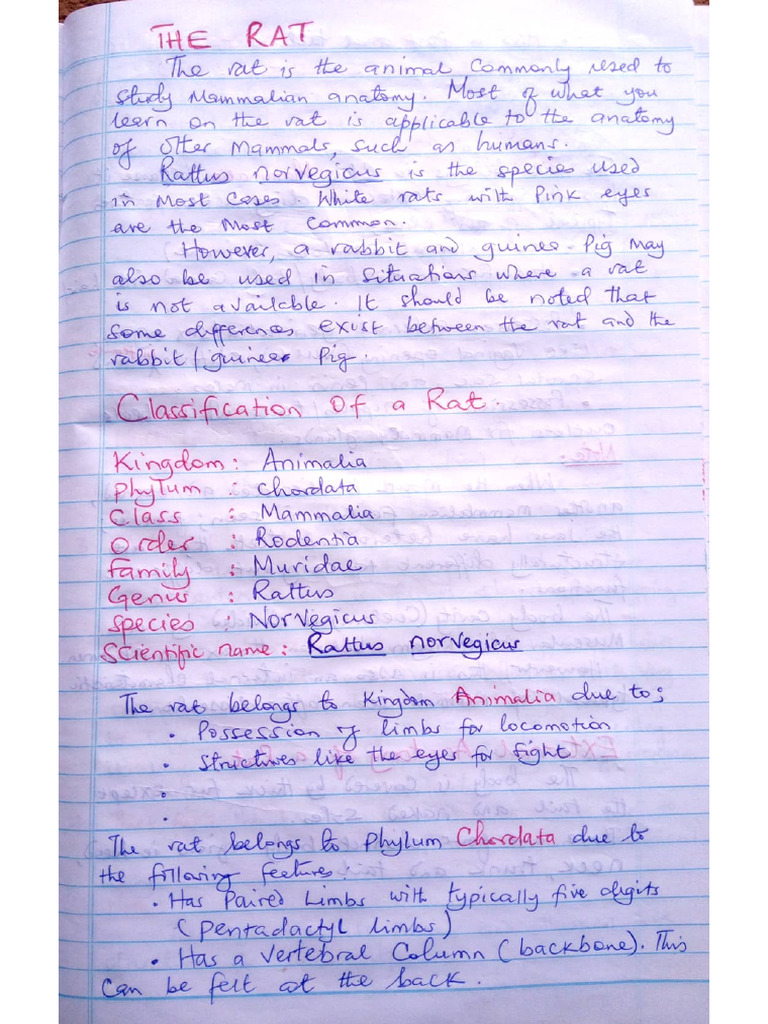 THE RAT
The rat is the animal commonly used to
study Mammalian anatomy. Most of what you
learn on the rat is applicable to the anatomy
of other Mammals, such as humans.
Rattus norvegicus is the species used
in most cases. White rats with pink eyes
are the most common.
However, a rabbit and guinea pig may
also be used in situations where a rat
is not available. It should be noted that
some differences exist between the rat and the
rabbit/guinea pig.
Classification of a Rat.
Kingdom: Animalia
Phylum : Chordata
Class : Mammalia
Order : Rodentia
Family : Muridae
Genus : Rattus
Species : Norvegicus
Scientific name: Rattus norvegicus
The rat belongs to kingdom Animalia due to;
• Possession of limbs for locomotion
• Structures like the eyes for fight
•
•
The rat belongs to phylum Chordata due to
the following features
• Has Paired Limbs with typically five digits
(pentadactyl limbs)
• Has a vertebral column (backbone). This
can be felt at the back.